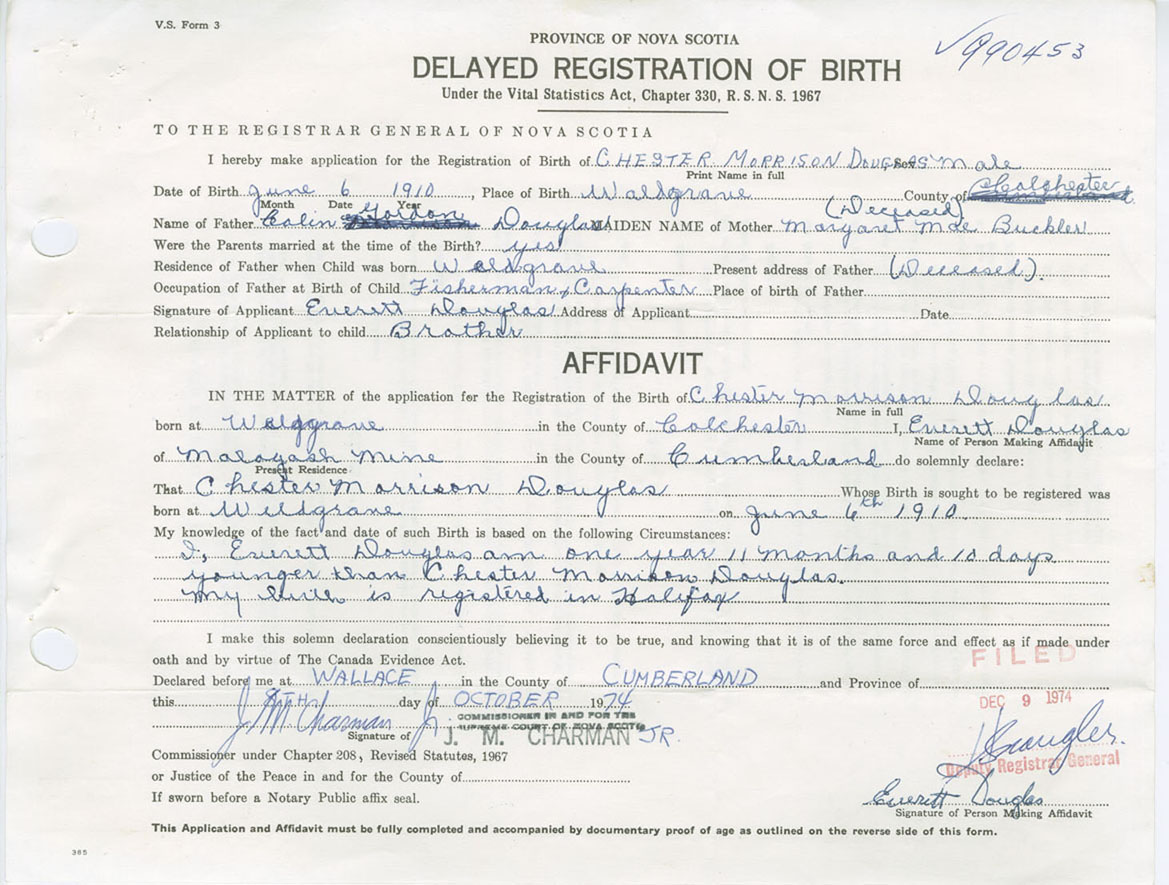 V.S. Form 3
√990453
PROVINCE OF NOVA SCOTIA
DELAYED REGISTRATION OF BIRTH
Under the Vital Statistics Act, Chapter 330, R. S. N. S. 1967
TO THE REGISTRAR GENERAL OF NOVA SCOTIA
I hereby make application for the Registration of Birth of CHESTER MORRISON DOUGLAS Sex Male
Print Name in full
Date of Birth June 6 1910, Place of Birth Waldgrave County of Colchester
Month Date Year (Deceased)
Name of Father Colin Gordon Douglas MAIDEN NAME of Mother Margaret Mae Buckler
Were the Parents married at the time of the Birth? yes
Residence of Father when Child was born Waldgrave Present address of Father (Deceased).
Occupation of Father at Birth of Child Fisherman, Carpenter Place of birth of Father
Signature of Applicant Everett Douglas Address of Applicant Date
Relationship of Applicant to child Brother
AFFIDAVIT
IN THE MATTER of the application for the Registration of the Birth of Chester Morrison Douglas
Name in full
born at Waldgrave in the County of Colchester I, Everett Douglas
Name of Person Making Affidavit
of Malagash Mine in the County of Cumberland do solemnly declare:
Present Residence
That Chester Morrison Douglas Whose Birth is sought to be registered was
born at Waldgrave on June 6th 1910
My knowledge of the fact and date of such Birth is based on the following Circumstances:
I, Everett Douglas am one year 11 months and 10 days
younger than Chester Morrison Douglas.
My birth is registered in Halifax
I make this solemn declaration conscientiously believing it to be true, and knowing that it is of the same force and effect as if made under
oath and by virtue of The Canada Evidence Act.
FILED
Declared before me at WALLACE in the County of CUMBERLAND and Province of
this TH day of OCTOBER 1974
DEC 9 1974
J M Charman Jr
COMMISSIONER IN AND FOR THE
SUPREME COURT OF NOVA SCOTIA
Signature of J. M. CHARMAN JR.
Commissioner under Chapter 208, Revised Statutes, 1967
Deputy Registrar General
or Justice of the Peace in and for the County of
If sworn before a Notary Public affix seal.
Everett Douglas
Signature of Person Making Affidavit
This Application and Affidavit must be fully completed and accompanied by documentary proof of age as outlined on the reverse side of this form.
385